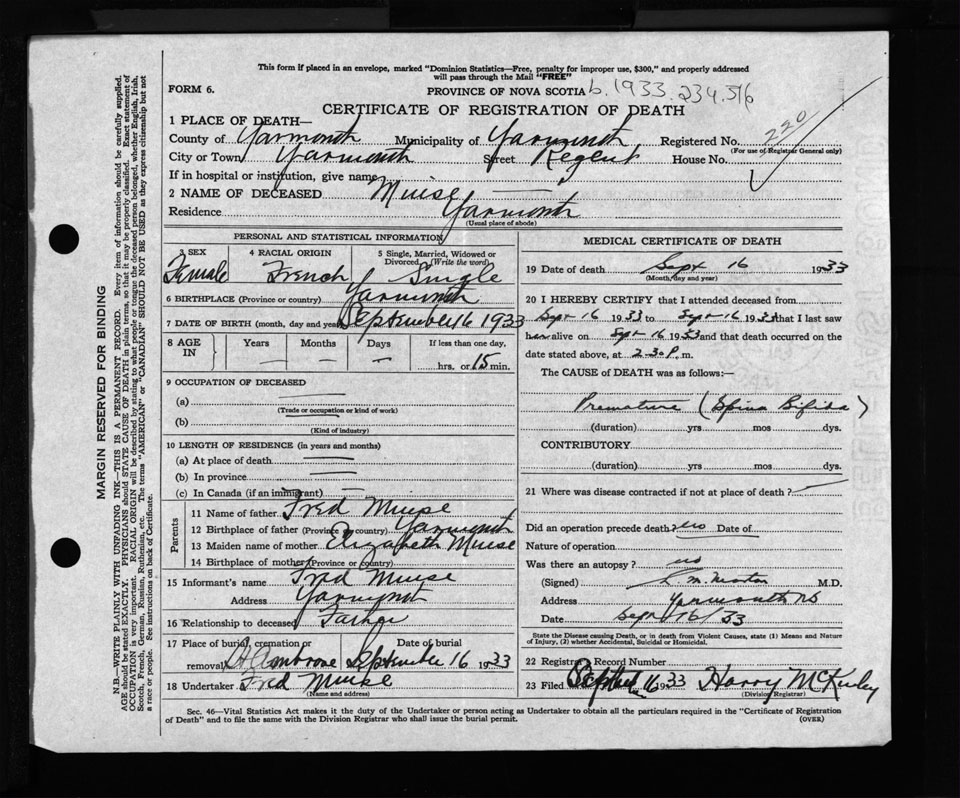 This form if placed in an envelope, marked "Dominion Statistics—Free, penalty for improper use, $300," and properly addressed
will pass through the Mail "FREE"
FORM 6.
PROVINCE OF NOVA SCOTIA b.1933.234.516
CERTIFICATE OF REGISTRATION OF DEATH
1 PLACE OF DEATH—
County of Yarmouth Municipality of Yarmouth Registered No. 220
(For use of Registrar General only)
City or Town Yarmouth Street Regent House No.
If in hospital or institution, give name
2 NAME OF DECEASED Muise
Residence Yarmouth
(Usual place of abode)
PERSONAL AND STATISTICAL INFORMATION
3 SEX Female
4 RACIAL ORIGIN French
5 Single, Married, Widowed or
Divorced (Write the word) Single
6 BIRTHPLACE (Province or country) Yarmouth
7 DATE OF BIRTH (month, day and year) September 16 1933
8 AGE IN Years — Months — Days — If less than one day,
hrs. or 15 min.
9 OCCUPATION OF DECEASED
(a)
(Trade or occupation or kind of work)
(b)
(Kind of industry)
10 LENGTH OF RESIDENCE (in years and months)
(a) At place of death
(b) In province
(c) In Canada (if an immigrant)
Parents
11 Name of father Fred Muise
12 Birthplace of father (Province or country) Yarmouth
13 Maiden name of mother Elizabeth Muise
14 Birthplace of mother (Province or country)
15 Informant's name Fred Muise
Address Yarmouth
16 Relationship to deceased Father
17 Place of burial, cremation or Date of burial
removal St Ambrose September 16 1933
18 Undertaker Fred Muise
(Name and address)
MEDICAL CERTIFICATE OF DEATH
19 Date of death Sept 16 1933
(Month, day and year)
20 I HEREBY CERTIFY that I attended deceased from
Sept 16 1933 to Sept 16 1933 that I last saw
her alive on Sept 16 1933 and that death occurred on the
date stated above, at 2.30 P. m.
The CAUSE of DEATH was as follows:—
Premature (Spina Bifida)
(duration) yrs mos dys.
CONTRIBUTORY
(duration) yrs mos dys.
21 Where was disease contracted if not at place of death?
Did an operation precede death zero Date of
Nature of operation
Was there an autopsy? no
(Signed) M.D.
Address Yarmouth NS
Date Sept 16/33
State the Disease causing Death, or in death from Violent Causes, state (1) Means and Nature
of Injury, (2) whether Accidental, Suicidal or Homicidal.
22 Registrar's Record Number
23 Filed Sept 16 1933 Harry McKinley
(Division Registrar)
Sec. 46—Vital Statistics Act makes it the duty of the Undertaker or person acting as Undertaker to obtain all the particulars required in the "Certificate of Registration
of Death" and to file the same with the Division Registrar who shall issue the burial permit.
(OVER)
MARGIN RESERVED FOR BINDING
N.B.—WRITE PLAINLY WITH UNFADING INK—THIS IS A PERMANENT RECORD. Every item of information should be carefully supplied.
AGE should be stated EXACTLY. PHYSICIANS should STATE CAUSE OF DEATH in plain terms, so that it may be properly classified. Exact statement of
OCCUPATION is very important. RACIAL ORIGIN will be described by stating to what people or tongue the deceased person belonged, whether English, Irish,
Scotch, French, German, Russian, Ruthenian, etc. The terms "AMERICAN" or "CANADIAN" SHOULD NOT BE USED as they express citizenship but not
a race or people. See instructions on back of Certificate.